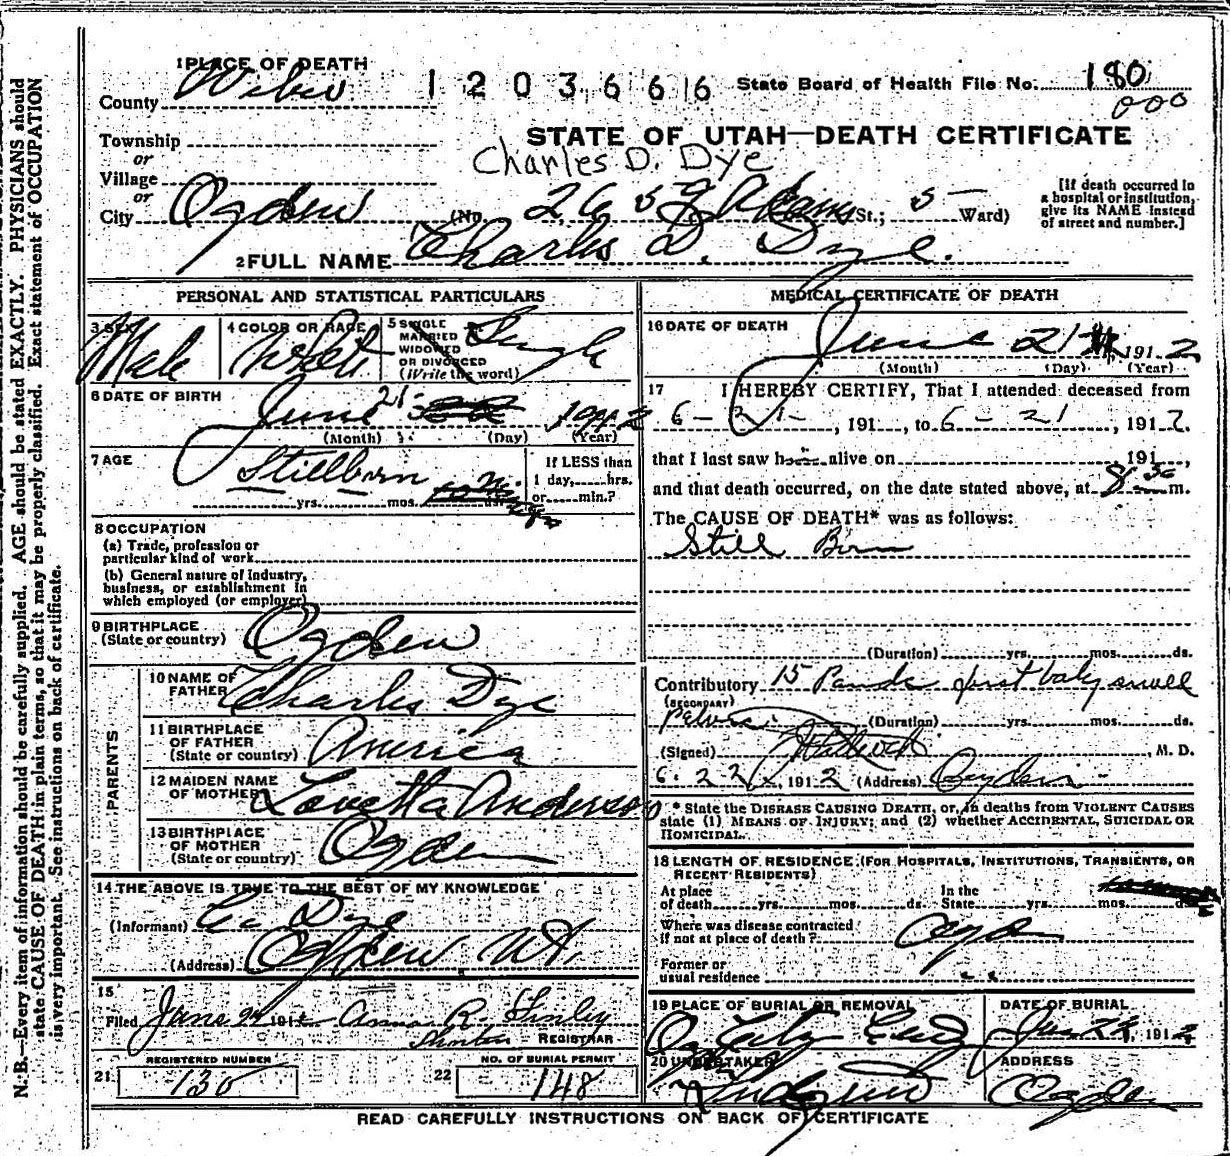 1 PLACE OF DEATH
County Weber 1203666 State Board of Health File No. 180
000
STATE OF UTAH—DEATH CERTIFICATE
Township
or
Village
or
Charles D. Dye
City Ogden (No. Adams St.; 5 Ward)
[If death occurred in a hospital or institution, give its NAME instead of street and number.]
2 FULL NAME Charles D. Dye.
PERSONAL AND STATISTICAL PARTICULARS
3 SEX Male
4 COLOR OR RACE White
5 SINGLE
MARRIED
WIDOWED
OR DIVORCED
(Write the word) Single
6 DATE OF BIRTH June 21 1912
(Month) (Day) (Year)
7 AGE Stillborn
yrs. mos. ds.
If LESS than
1 day, hrs.
or min.?
8 OCCUPATION
(a) Trade, profession or
particular kind of work
(b) General nature of Industry,
business, or establishment in
which employed (or employer)
9 BIRTHPLACE
(State or country) Ogden
PARENTS
10 NAME OF
FATHER Charles Dye
11 BIRTHPLACE
OF FATHER
(State or country) America
12 MAIDEN NAME
OF MOTHER Lovetta Anderson
13 BIRTHPLACE
OF MOTHER
(State or country) Ogden
14 THE ABOVE IS TRUE TO THE BEST OF MY KNOWLEDGE
(Informant) Dye
(Address) Ogden Ut.
15
Filed June 24 191 Anna R. Shinley
REGISTRAR
REGISTERED NUMBER
21 130
NO. OF BURIAL PERMIT
22 148
MEDICAL CERTIFICATE OF DEATH
16 DATE OF DEATH June 21 1912
(Month) (Day) (Year)
17 I HEREBY CERTIFY, That I attended deceased from
6-21-, 191, to 6-21, 1912.
that I last saw h alive on , 191 ,
and that death occurred, on the date stated above, at 8 30 m.
The CAUSE OF DEATH* was as follows:
Still Born
(Duration) yrs. mos. ds.
Contributory 15 first baby small
(SECONDARY)
pelvis (Duration) yrs. mos. ds.
(Signed) , M. D.
6-22, 1912 (Address) Ogden
* State the DISEASE CAUSING DEATH, or, in deaths from VIOLENT CAUSES
state (1) MEANS OF INJURY; and (2) whether ACCIDENTAL, SUICIDAL OR
HOMICIDAL.
18 LENGTH OF RESIDENCE (FOR HOSPITALS, INSTITUTIONS, TRANSIENTS, OR
RECENT RESIDENTS)
At place
of death yrs. mos. ds.
In the
State yrs. mos. ds
Where was disease contracted
if not at place of death? Ogden
Former or
usual residence " "
19 PLACE OF BURIAL OR REMOVAL
City
DATE OF BURIAL
June 1912
20 UNDERTAKER
Lindquist
ADDRESS
Ogden
READ CAREFULLY INSTRUCTIONS ON BACK OF CERTIFICATE
N. B.—Every item of information should be carefully supplied. AGE should be stated EXACTLY. PHYSICIANS should
state CAUSE OF DEATH in plain terms, so that it may be properly classified. Exact statement of OCCUPATION
is very important. See instructions on back of certificate.